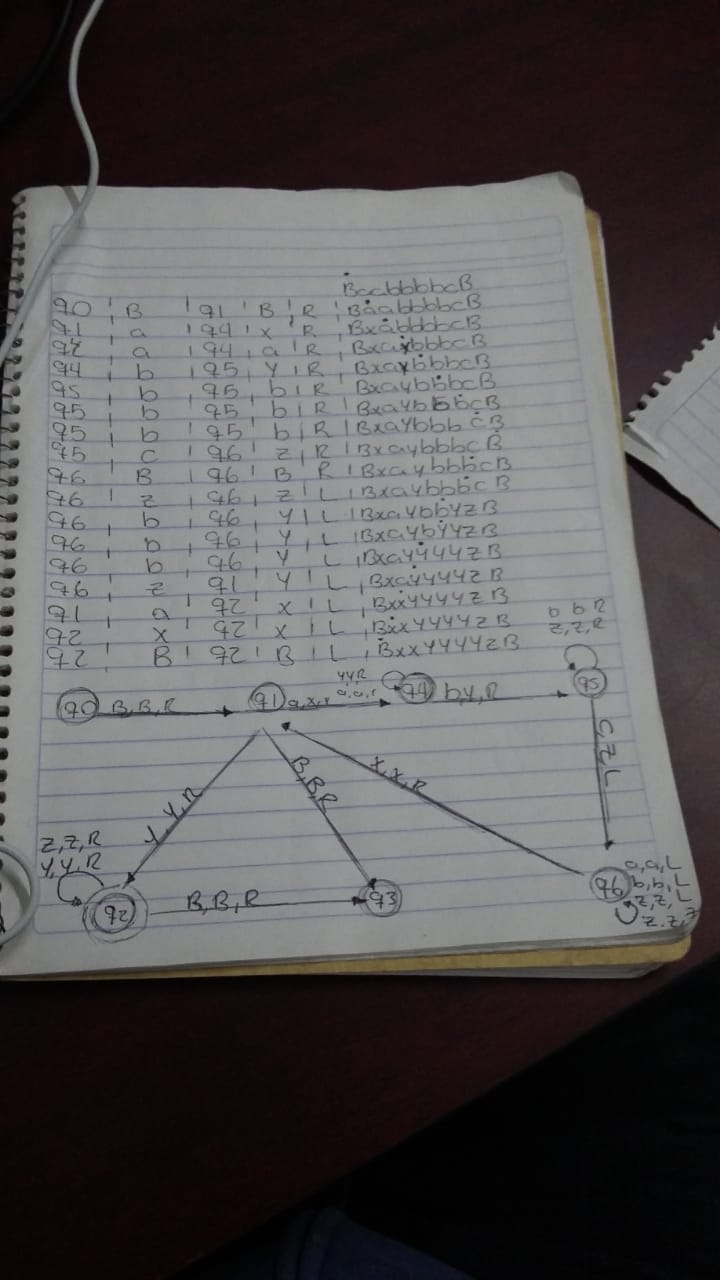 BaabbbbcB
q0 | B | q1 | B | R | BaabbbbcB
q1 | a | q4 | x | R | BxabbbbcB
q4 | a | q4 | a | R | BxaybbbcB
q4 | b | q5 | y | R | BxaybbbcB
q5 | b | q5 | b | R | BxaybbbcB
q5 | b | q5 | b | R | BxaybbbcB
q5 | b | q5 | b | R | BxaybbbcB
q5 | c | q6 | z | R | BxaybbbcB
q6 | B | q6 | B | R | BxaybbbcB
q6 | z | q6 | z | L | BxaybbbcB
q6 | b | q6 | y | L | BxaybbyzB
q6 | b | q6 | y | L | BxaybyyzB
q6 | b | q6 | y | L | BxayyyyzB
q6 | z | q1 | y | L | BxayyyyzB
q1 | a | q2 | x | L | BxxyyyyzB
q2 | x | q2 | x | L | BxxyyyyzB
q2 | B | q2 | B | L | BxxyyyyzB
b b R
z,z,R
yyR
q0 B,B,R q1 a,x,r a,a,r q4 b,y,R q5
c,z,L
x,x,R
B,B,R
y,y,R
z,z,R
y,y,R
q2 B,B,R q3
q6 a,a,L
b,b,L
z,z,L
z,z,z